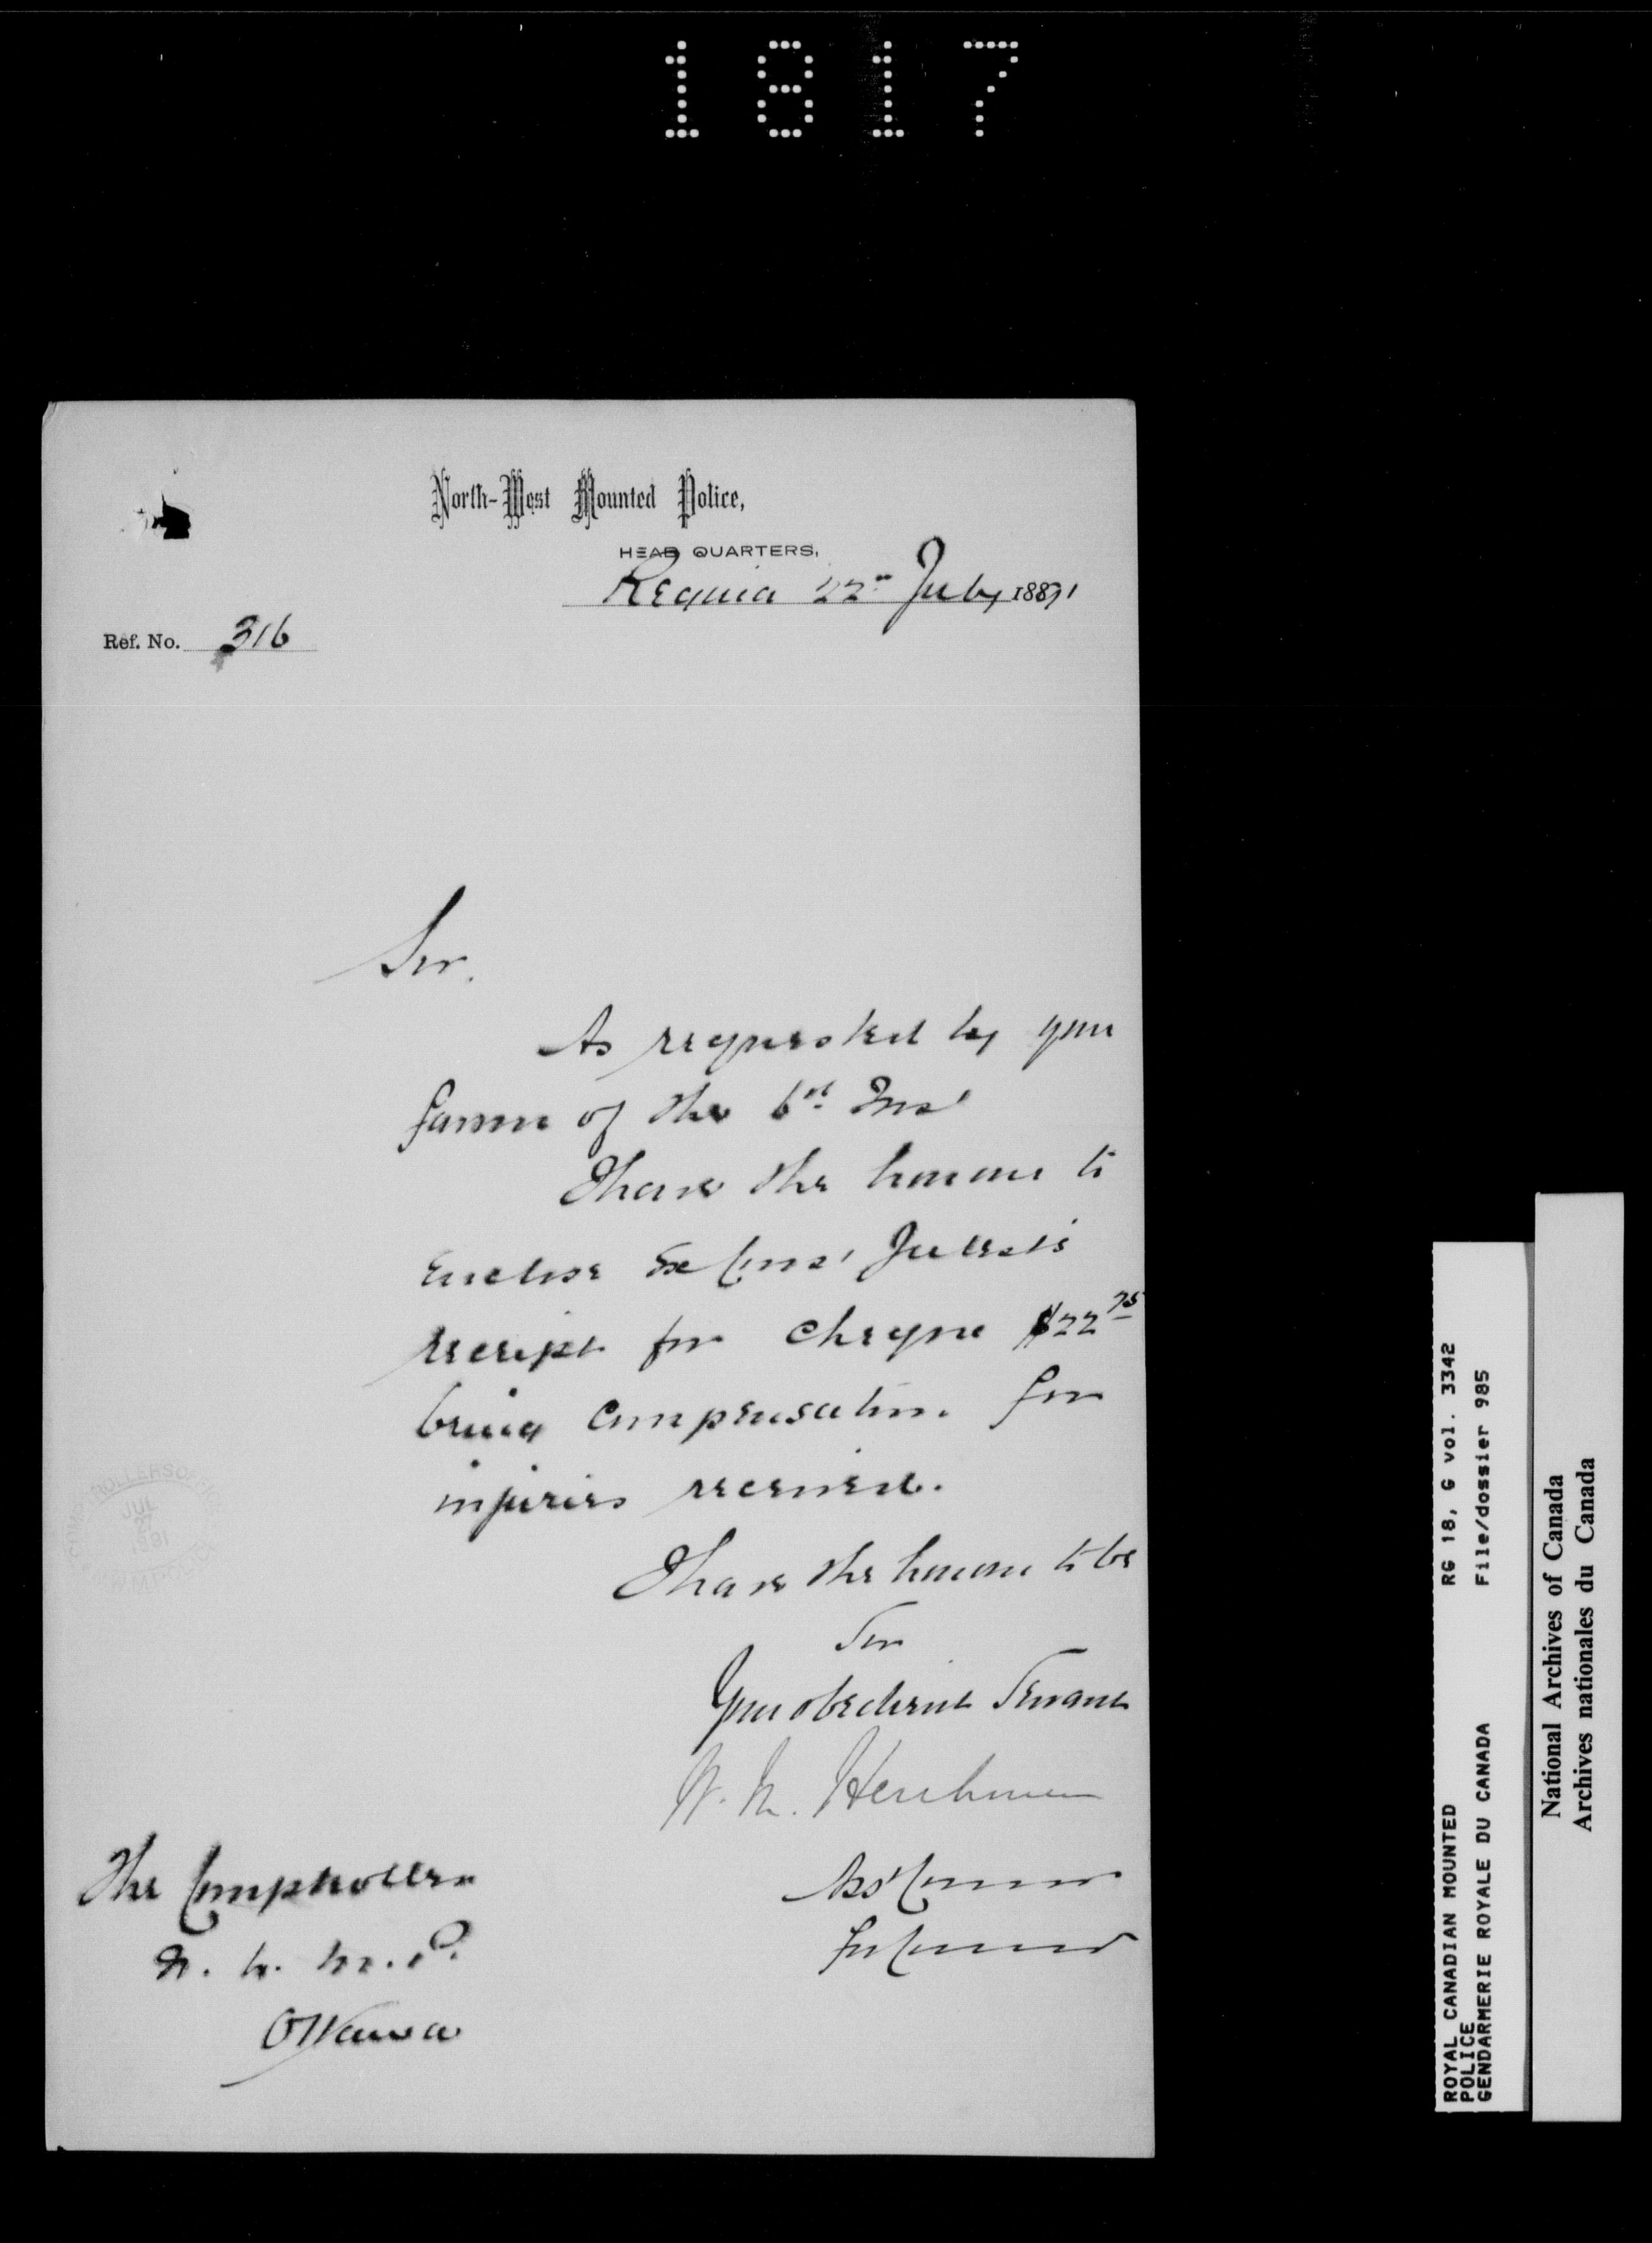 1817
North-West Mounted Police,
HEAD QUARTERS,
Regina 22nd July 1891
Ref. No. 316
Sir.
As requested by your
favour of the 6th Inst
I have the honour to
enclose Ex Const
receipt for cheque $22 75
being compensation for
injuries received.
I have the honour to be
Sir
Your obedient Servant
W. M. Herchmer
Asst Commr
for Commr
The Comptroller
N. W. M. P.
Ottawa
JUL
27
1891
ROYAL CANADIAN MOUNTED RG 18, G vol. 3342
POLICE
GENDARMERIE ROYALE DU CANADA File/dossier 985
National Archives of Canada
Archives nationales du Canada